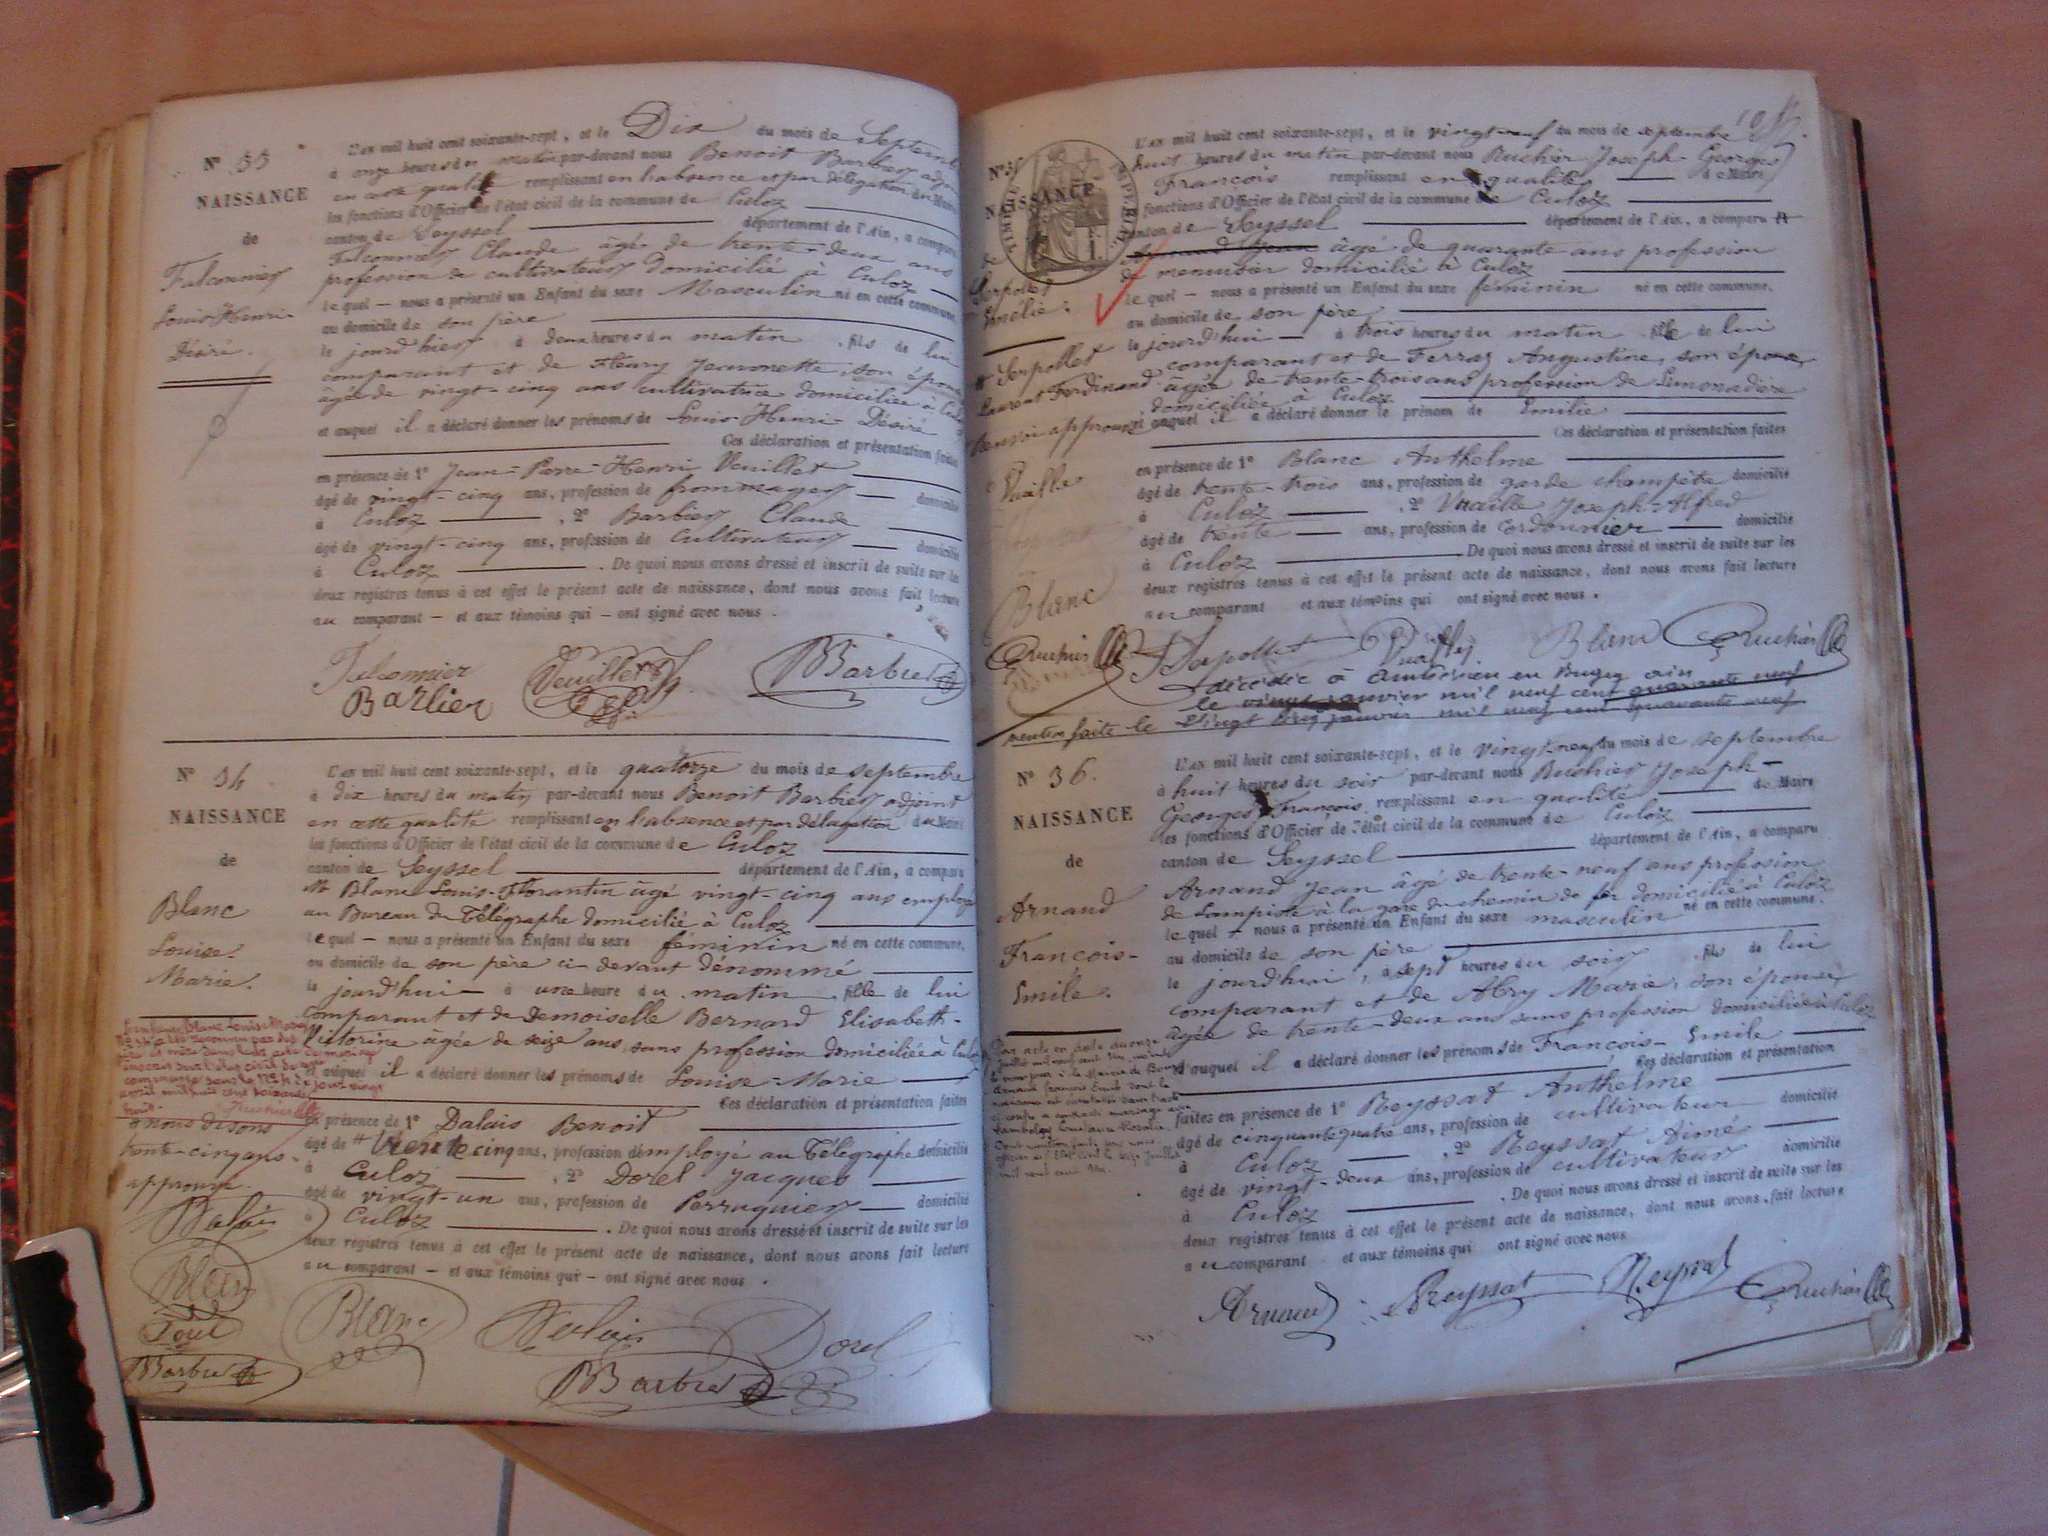 N° 33
NAISSANCE
de
Falconnier
Louis-Henri-
Désiré.
L'an mil huit cent soixante-sept, et le Dix du mois de Septembre
à onze heures du matin par-devant nous Benoit Barbier adjoint
en cette qualité remplissant en l'absence et par délégation du Maire
les fonctions d'Officier de l'état civil de la commune de Culoz
canton de Seyssel département de l'Ain, a comparu
Falconnier Claude âgé de trente-deux ans
profession de cultivateur domicilié à Culoz
lequel – nous a présenté un Enfant du sexe Masculin né en cette commune,
au domicile de son père
le jourd'hier à deux heures du matin, fils de lui
comparant et de Fleury Jeannette, son épouse
âgée de vingt-cinq ans cultivatrice domiciliée à Culoz
et auquel il a déclaré donner les prénoms de Louis-Henri-Désiré
Ces déclaration et présentation faites
en présence de 1° Jean-Pierre-Henri Veuillet
âgé de vingt-cinq ans, profession de frommager domicilié
à Culoz, 2° Barbier Claude
âgé de vingt-cinq ans, profession de cultivateur domicilié
à Culoz. De quoi nous avons dressé et inscrit de suite sur les
deux registres tenus à cet effet le présent acte de naissance, dont nous avons fait lecture
au comparant – et aux témoins qui – ont signé avec nous.
Falconnier Veuillet BBarbier
Barbier
N° 34
NAISSANCE
de
Blanc
Louise-
Marie.
à nous disons
trente-cinq ans
approuvé.
Dalais
Blanc
Dorel
BBarbier
L'an mil huit cent soixante-sept, et le quatorze du mois de septembre
à dix heures du matin par-devant nous Benoit Barbier adjoint
en cette qualité remplissant en l'absence et par délégation du Maire
les fonctions d'Officier de l'état civil de la commune de Culoz
canton de Seyssel département de l'Ain, a comparu
Mr Blanc Louis-Florantin âgé vingt-cinq ans employé
au Bureau du Télégraphe domicilié à Culoz
lequel – nous a présenté un Enfant du sexe féminin né en cette commune,
au domicile de son père ci-devant dénommé
le jourd'hui – à une heure du matin, fille de lui
comparant et de Demoiselle Bernard Elisabeth-
Victorine âgée de seize ans, sans profession domiciliée à Culoz
et auquel il a déclaré donner les prénoms de Louise-Marie
Ces déclaration et présentation faites
en présence de 1° Dalais Benoit
âgé de trente cinq ans, profession d'employé au Télégraphe domicilié
à Culoz, 2° Dorel Jacques
âgé de vingt-un ans, profession de Perruquier domicilié
à Culoz. De quoi nous avons dressé et inscrit de suite sur les
deux registres tenus à cet effet le présent acte de naissance, dont nous avons fait lecture
au comparant – et aux témoins qui – ont signé avec nous.
Blanc Dalais Dorel
BBarbier
105
N° 35
NAISSANCE
de
Serpollet
Emélie.
Serpollet
Laurent Ferdinand
renvoi approuvé
Vuaille
Blanc
Ruchier
L'an mil huit cent soixante-sept, et le vingt-neuf du mois de septembre
huit heures du matin par-devant nous Ruchier Joseph-Georges
François remplissant en qualité de Maire
fonctions d'Officier de l'état civil de la commune de Culoz
canton de Seyssel département de l'Ain, a comparu
Arnaud Jean âgé de quarante ans profession
de menuisier domicilié à Culoz
lequel – nous a présenté un Enfant du sexe féminin né en cette commune,
au domicile de son père
le jourd'hui – à trois heures du matin, fille de lui
comparant et de Ferraz Augustine, son épouse
âgée de trente-trois ans profession de Limonadière
domiciliée à Culoz
et auquel il a déclaré donner le prénom de Emilie
Ces déclaration et présentation faites
en présence de 1° Blanc Anthelme
âgé de trente-trois ans, profession de garde champêtre domicilié
à Culoz, 2° Vuaille Joseph-Alfred
âgé de trente ans, profession de cordonnier domicilié
à Culoz. De quoi nous avons dressé et inscrit de suite sur les
deux registres tenus à cet effet le présent acte de naissance, dont nous avons fait lecture
au comparant et aux témoins qui ont signé avec nous.
Serpollet Vuaille Blanc Ruchier
décédée à Ambérieu en Bugey ain
le vingt janvier mil neuf cent quarante neuf
mention faite le vingt janvier mil neuf cent quarante neuf
N° 36.
NAISSANCE
de
Arnaud
François-
Emile.
L'an mil huit cent soixante-sept, et le vingt-neuf du mois de septembre
à huit heures du soir par-devant nous Ruchier Joseph-
Georges François, remplissant en qualité de Maire
les fonctions d'Officier de l'état civil de la commune de Culoz
canton de Seyssel département de l'Ain, a comparu
Arnaud Jean âgé de trente-neuf ans profession
de Lampiste à la gare du chemin de fer domicilié à Culoz
lequel – nous a présenté un Enfant du sexe masculin né en cette commune.
au domicile de son père
le jourd'hui, à sept heures du soir, fils de lui
comparant et de Abry Marie, son épouse
âgée de trente-deux ans sans profession domiciliée à Culoz
et auquel il a déclaré donner les prénoms de François-Emile
Ces déclaration et présentation
faites en présence de 1° Reyssat Anthelme
âgé de cinquante quatre ans, profession de cultivateur domicilié
à Culoz, 2° Reyssat Aimé
âgé de vingt-deux ans, profession de cultivateur domicilié
à Culoz. De quoi nous avons dressé et inscrit de suite sur les
deux registres tenus à cet effet le présent acte de naissance, dont nous avons fait lecture
au comparant et aux témoins qui ont signé avec nous
Arnaud Reyssat Reyssat Ruchier